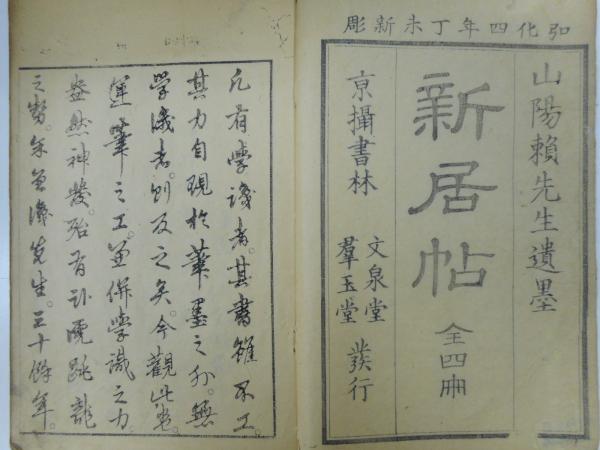 弘化四年丁未新彫
山陽賴先生遺墨
新居帖 全四冊
京攝書林 文泉堂 羣玉堂 發行
凡有學識者。其書雖不工。
其力自現於筆墨之外。無
學識者。則反之矣。今觀此卷。
運筆之工。兼併學識之力。
盎然神發。殆有臥虎跳龍
之勢。余知識先生。三十餘年。